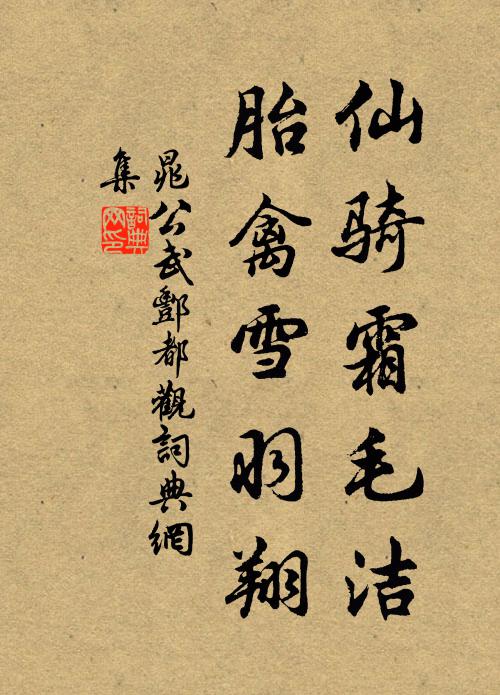 仙骑霜毛洁
胎禽雪羽翔
晁公武酆都觀詞典網
集
詞典
网印